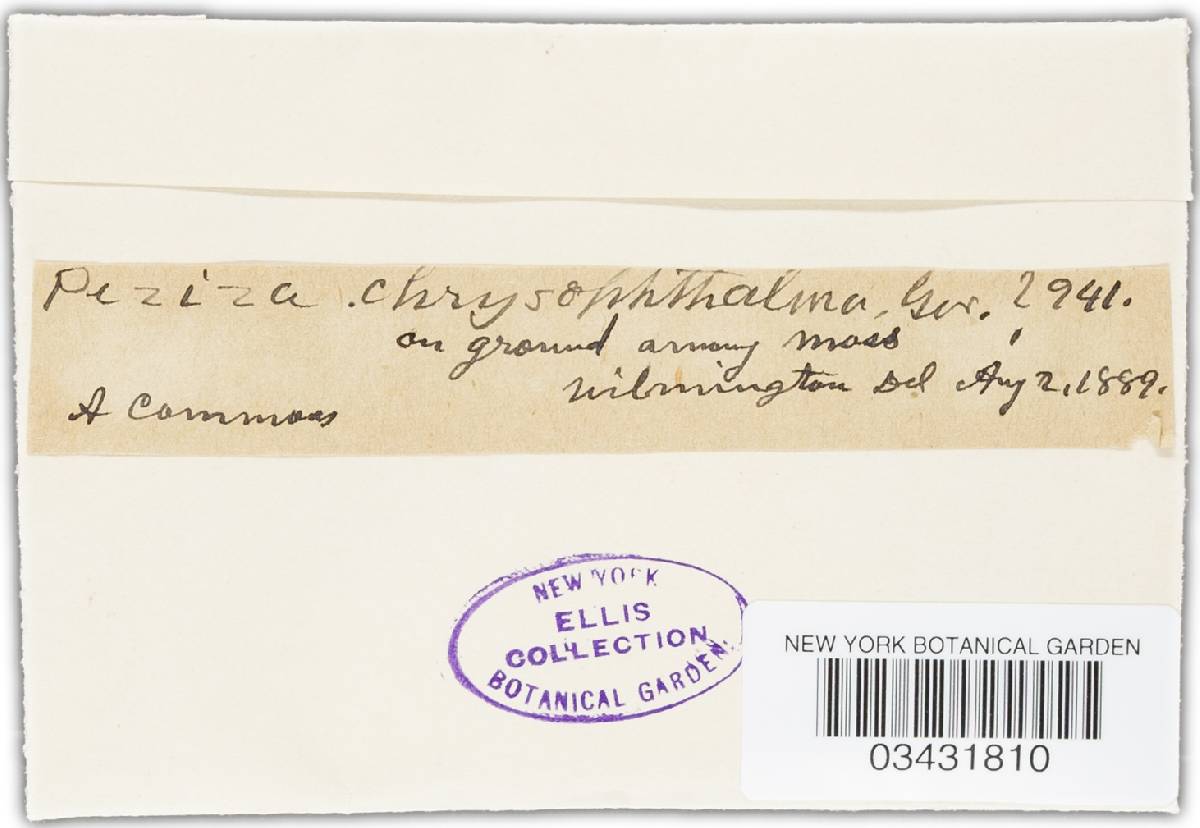 Peziza chrysophthalma, Gev. ? 941.
on ground among moss
Wilmington Del Aug 2, 1889.
A Commons
NEW YORK
ELLIS
COLLECTION
BOTANICAL GARDEN.
NEW YORK BOTANICAL GARDEN
03431810